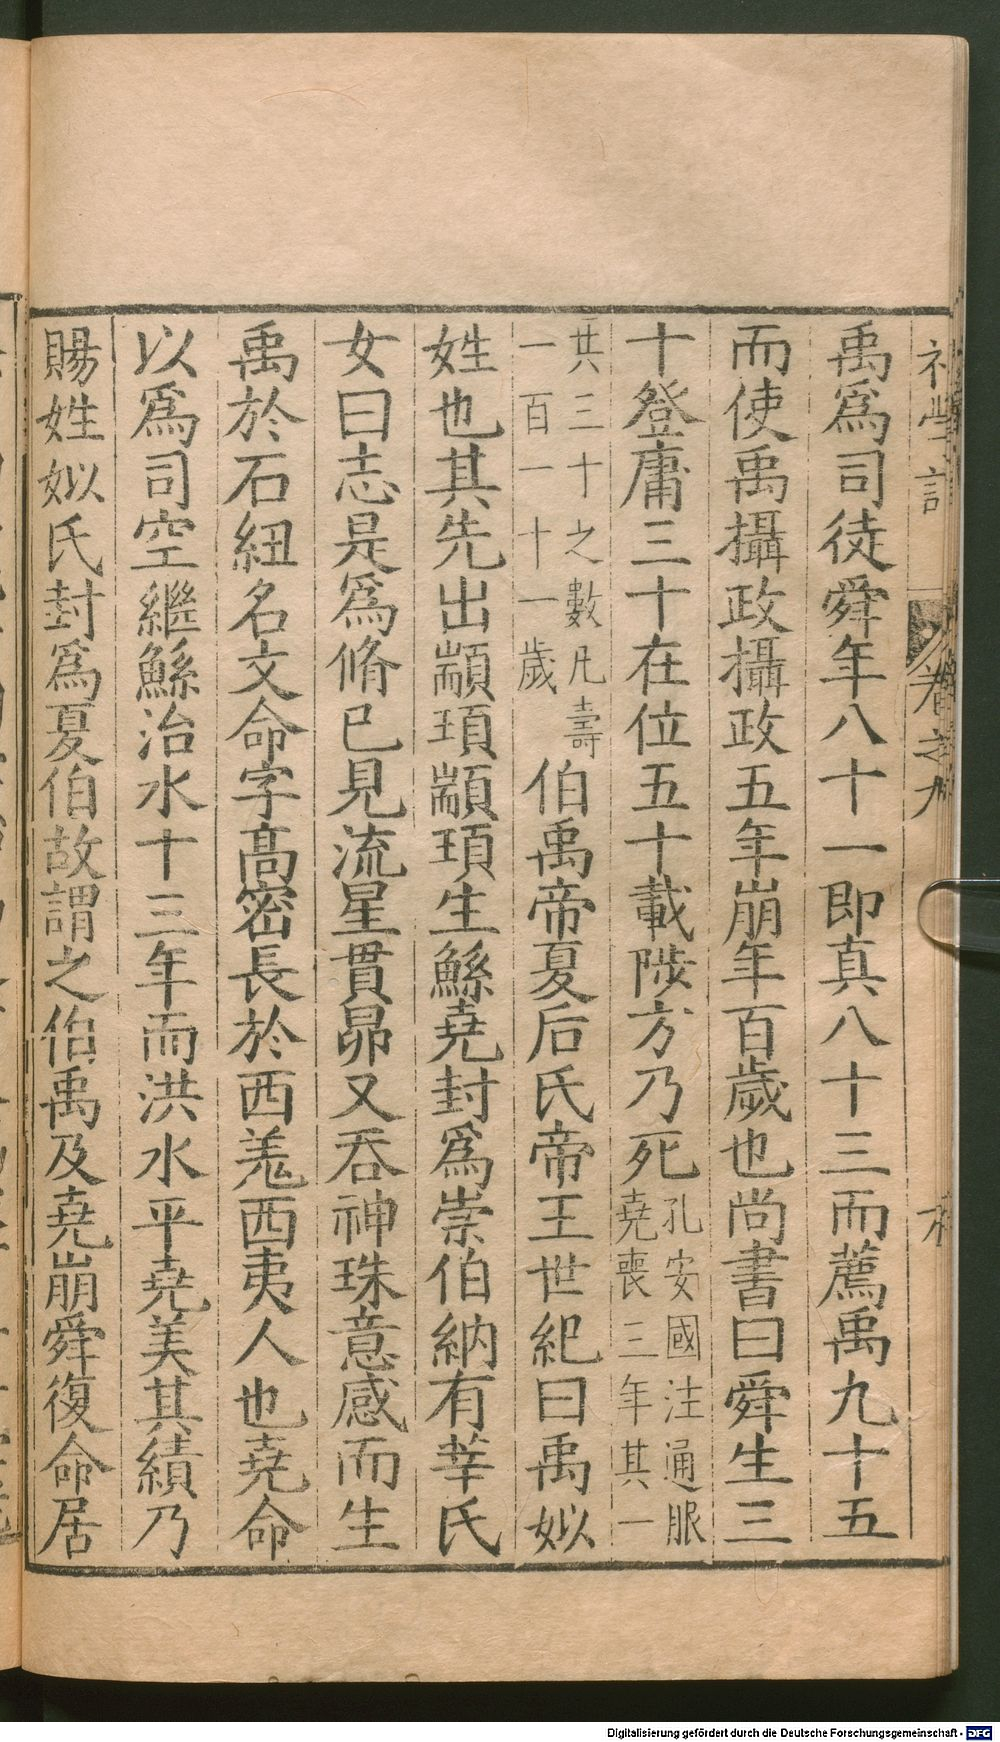 禹爲司徒舜年八十一即真八十三而薦禹九十五
而使禹攝政攝政五年崩年百歲也尚書曰舜生三
十登庸三十在位五十載陟方乃死孔安國注通服堯喪三年其一
共三十之數凡壽一百一十一歲伯禹帝夏后氏帝王世紀曰禹姒
姓也其先出顓頊顓頊生鯀堯封爲崇伯納有莘氏
女曰志是爲脩已見流星貫昴又吞神珠意感而生
禹於石紐名文命字高密長於西羗西夷人也堯命
以爲司空繼鯀治水十三年而洪水平堯美其績乃
賜姓姒氏封爲夏伯故謂之伯禹及堯崩舜復命居
卷之九
Digitalisierung gefördert durch die Deutsche Forschungsgemeinschaft - DFG